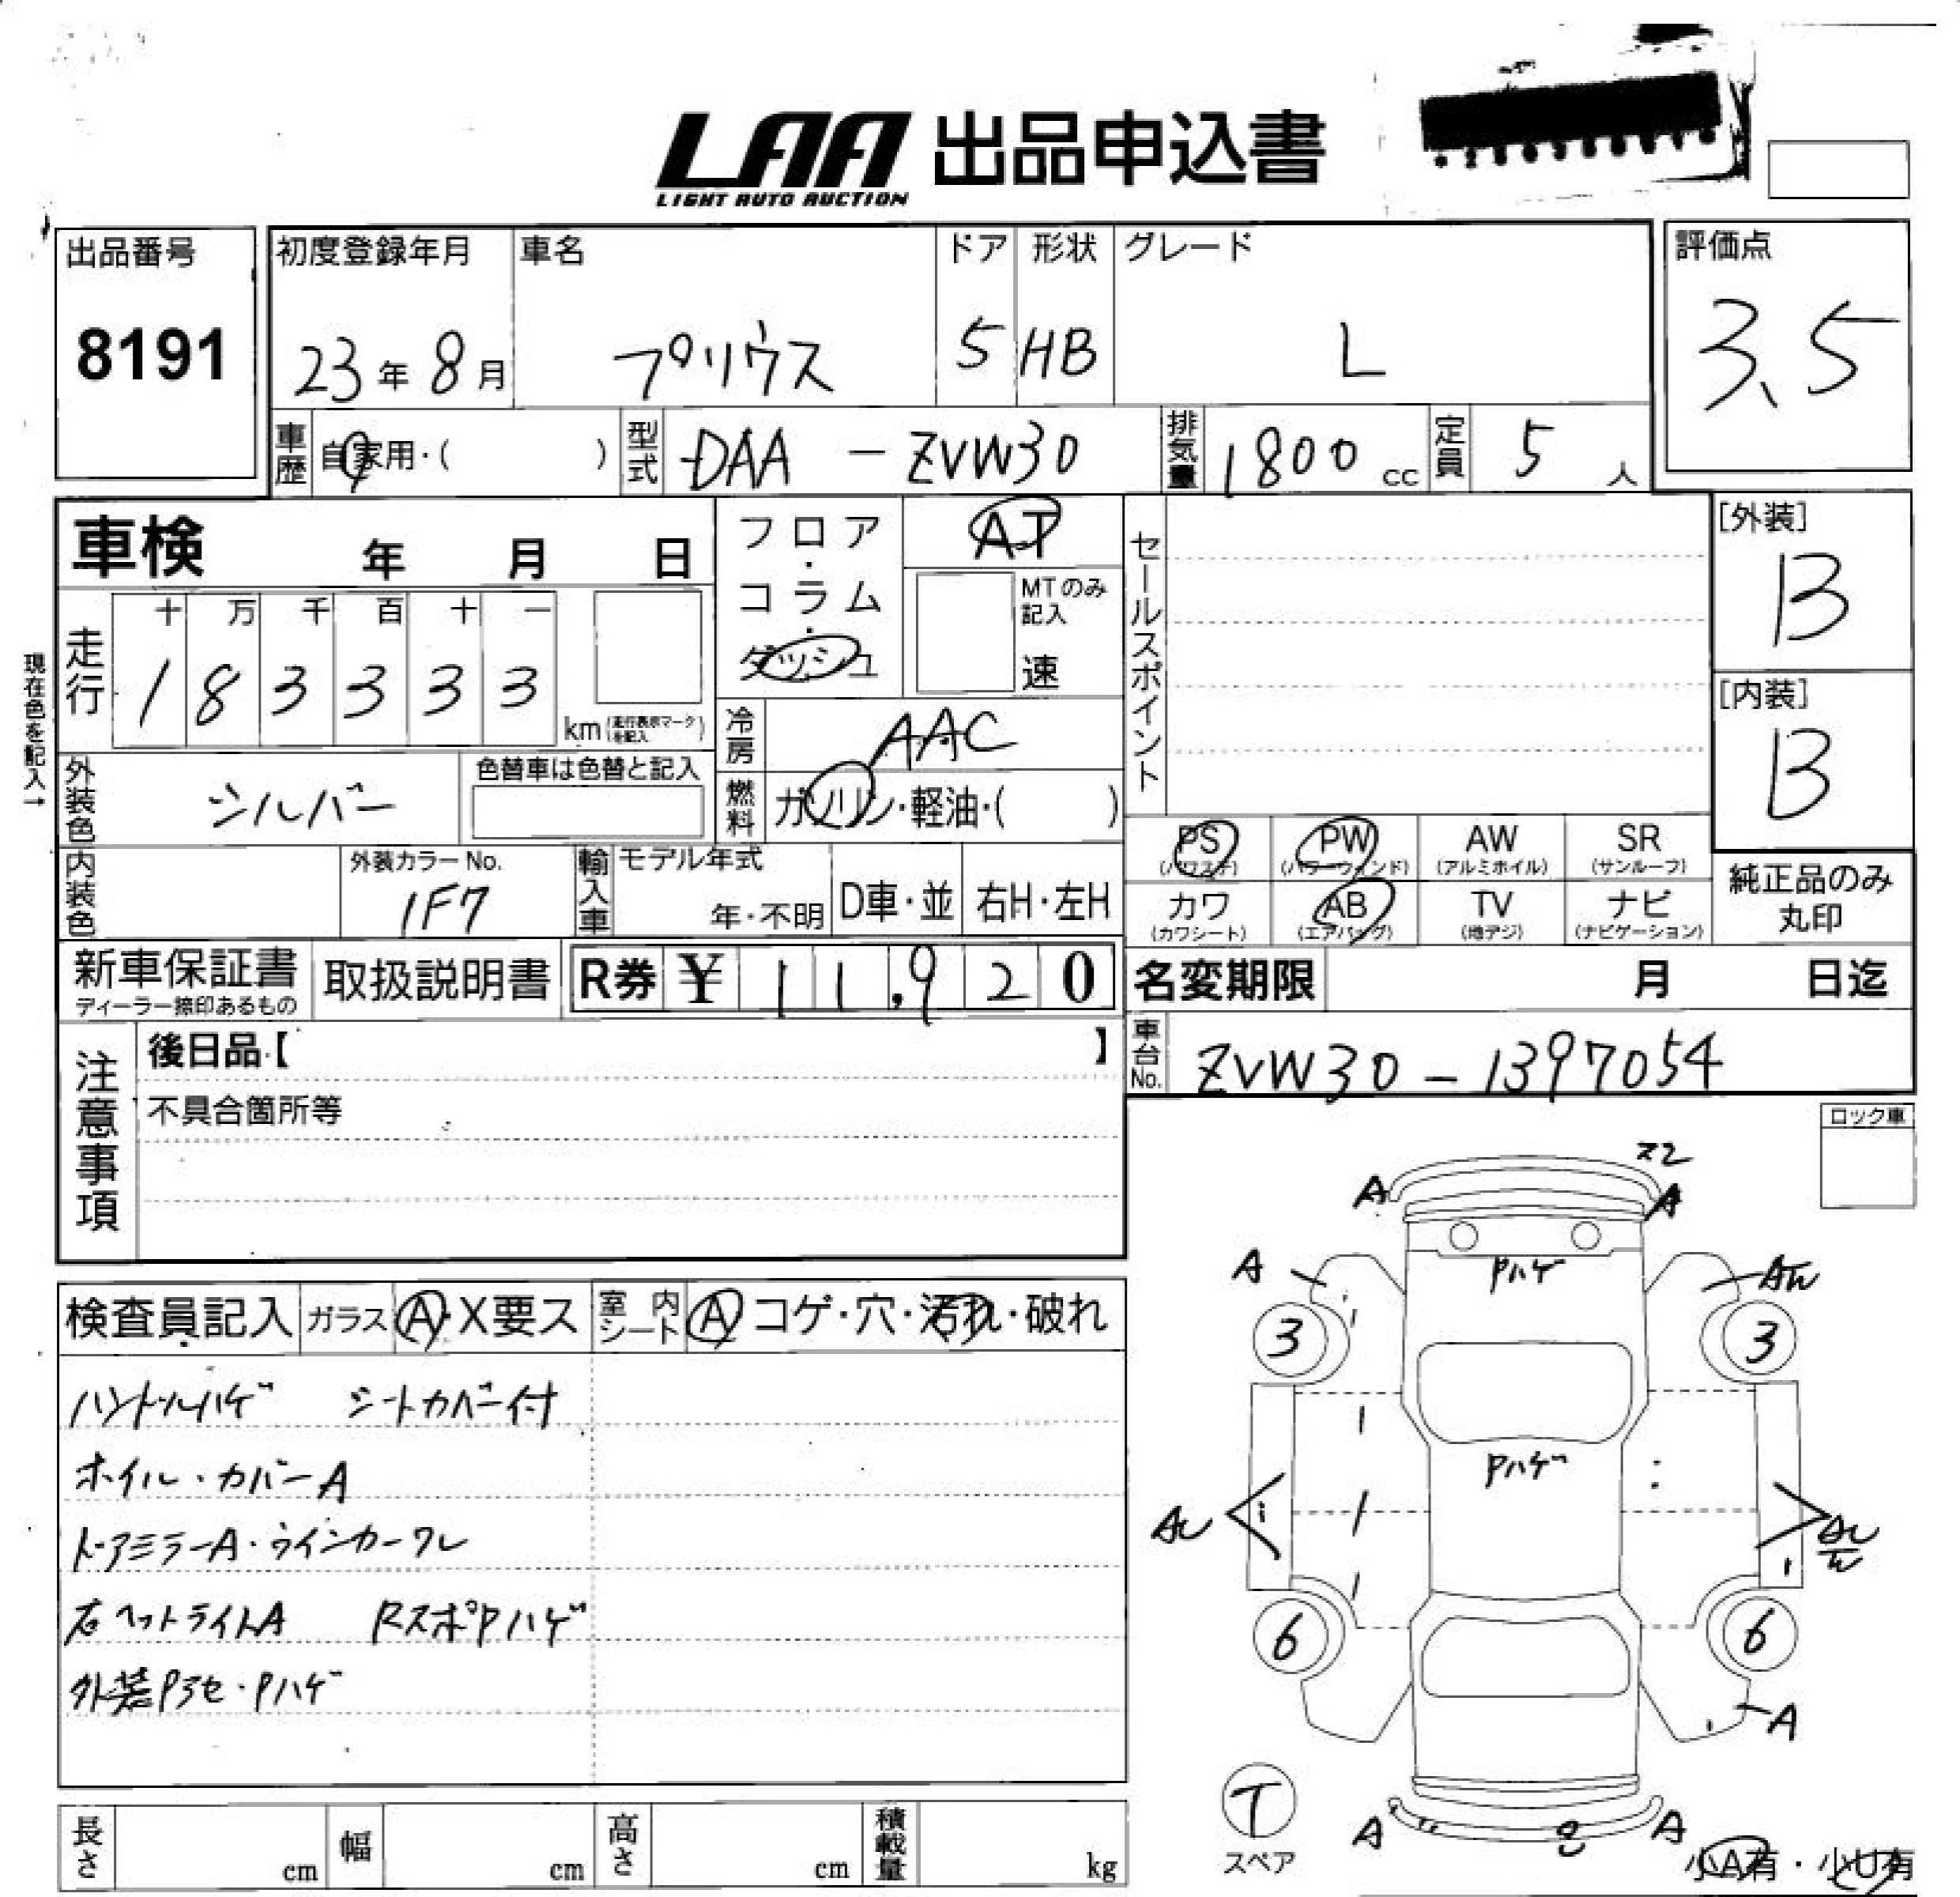 LAA 出品申込書
LIGHT AUTO AUCTION
出品番号
8191
初度登録年月
23年8月
車名
プリウス
ドア
5
形状
HB
グレード
L
評価点
3.5
車歴 自家用・( )
型式 DAA - ZVW30
排気量 1800 cc
定員 5 人
車検 年 月 日
フロア・コラム・ダッシュ
AT
MTのみ記入
速
セールスポイント
[外装]
B
[内装]
B
走行
十 万 千 百 十 一
1 8 3 3 3 3
km (走行表示マークを記入)
現在色を記入→
冷房 AAC
外装色 シルバー
色替車は色替と記入
燃料 ガソリン・軽油・( )
内装色
外装カラーNo.
1F7
輸入車
モデル年式
年・不明
D車・並
右H・左H
PS (パワステ)
PW (パワーウィンド)
AW (アルミホイル)
SR (サンルーフ)
カワ (カワシート)
AB (エアバッグ)
TV (地デジ)
ナビ (ナビゲーション)
純正品のみ丸印
新車保証書
ディーラー捺印あるもの
取扱説明書
R券 ¥ 11,920
名変期限 月 日迄
車台No. ZVW30-1397054
注意事項
後日品【 】
不具合箇所等
ロック車
検査員記入
ガラス A・X要ス
室内シート A コゲ・穴・汚れ・破れ
ハンドルハゲ シートカバー付
ホイル・カバーA
ドアミラーA・ウインカーワレ
右ヘッドライトA RスポPハゲ
外装Pヤセ・Pハゲ
A
A
A
Pハゲ
3
3
Pハゲ
6
6
A
T
スペア
A
A
小A有・小U有
長さ cm
幅 cm
高さ cm
積載量 kg